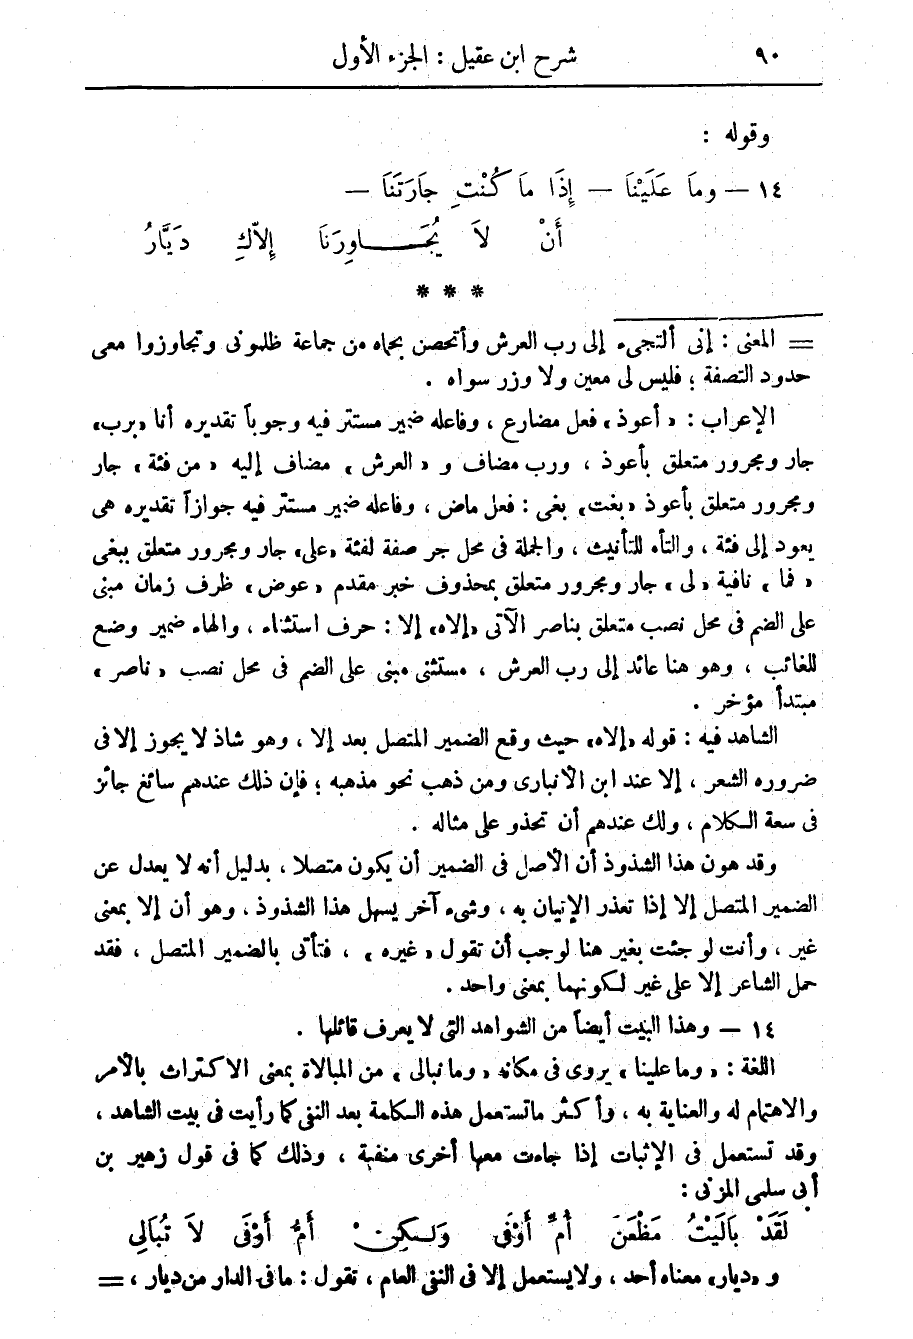 ٩٠ شرح ابن عقيل : الجزء الأول
وقوله :
١٤ — وما عَلَيْنَا — إِذَا ما كُنْتِ جَارَتَنَا —
أَنْ لاَ يُجَـــاوِرَنَا إِلاَّكِ دَيَّارُ
* * *
= المعنى : إنى ألتجىء إلى رب العرش وأتحصن بحماه من جماعة ظلمونى وتجاوزوا معى
حدود النصفة ؛ فليس لى معين ولا وزر سواه .
الإعراب : « أعوذ » فعل مضارع ، وفاعله ضمير مستتر فيه وجوباً تقديره أنا « برب »
جار ومجرور متعلق بأعوذ ، ورب مضاف و « العرش » مضاف إليه « من فئة » جار
ومجرور متعلق بأعوذ « بغت » بغى : فعل ماض ، وفاعله ضمير مستتر فيه جوازاً تقديره هى
يعود إلى فئة ، والتاء للتأنيث ، والجملة فى محل جر صفة لفئة « على » جار ومجرور متعلق ببغى
« فما » نافية « لى » جار ومجرور متعلق بمحذوف خبر مقدم « عوض » ظرف زمان مبنى
على الضم فى محل نصب متعلق بناصر الآتى « إلاه » إلا : حرف استثناء ، والهاء ضمير وضع
للغائب ، وهو هنا عائد إلى رب العرش ، مستثنى مبنى على الضم فى محل نصب « ناصر »
مبتدأ مؤخر .
الشاهد فيه : قوله « إلاه » حيث وقع الضمير المتصل بعد إلا ، وهو شاذ لا يجوز إلا فى
ضروره الشعر ، إلا عند ابن الأنبارى ومن ذهب نحو مذهبه ؛ فإن ذلك عندهم سائغ جائز
فى سعة الكلام ، ولك عندهم أن تحذو على مثاله .
وقد هون هذا الشذوذ أن الأصل فى الضمير أن يكون متصلا ، بدليل أنه لا يعدل عن
الضمير المتصل إلا إذا تعذر الإتيان به ، وشىء آخر يسهل هذا الشذوذ ، وهو أن إلا بمعنى
غير ، وأنت لو جئت بغير هنا لوجب أن تقول « غيره » ، فتأتى بالضمير المتصل ، فقد
حمل الشاعر إلا على غير لكونهما بمعنى واحد .
١٤ — وهذا البيت أيضاً من الشواهد التى لا يعرف قائلها .
اللغة : « وما علينا » يروى فى مكانه « وما نبالى » من المبالاة بمعنى الاكتراث بالأمر
والاهتمام له والعناية به ، وأكثر ما تستعمل هذه الكلمة بعد النفى كما رأيت فى بيت الشاهد ،
وقد تستعمل فى الإثبات إذا جاءت معها أخرى منفية ، وذلك كما فى قول زهير بن
أبى سلمى المزنى :
لَقَدْ بَالَيْتُ مَظْعَنَ أُمِّ أَوْفَى وَلكِنْ أُمُّ أَوْفَى لاَ تُبَالِى
و « ديار » معناه أحد ، ولا يستعمل إلا فى النفى العام ، تقول : ما فى الدار من ديار ، =